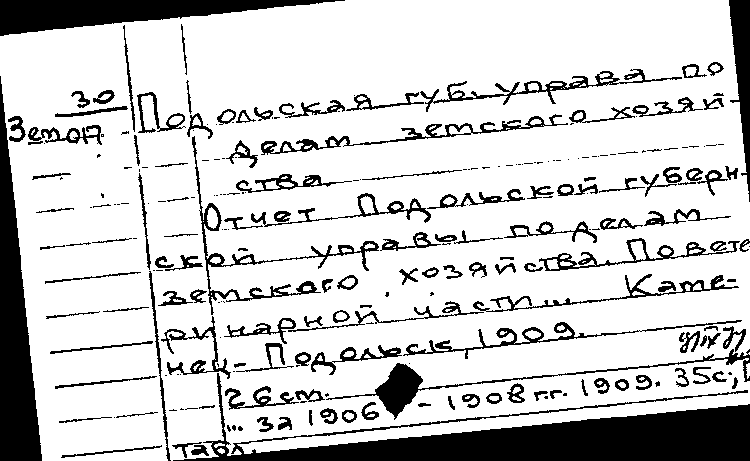 30
Зем017
Подольская губ. управа по
делам земского хозяй-
ства.
Отчет Подольской губерн-
ской управы по делам
земского хозяйства. По вете
ринарной части... Каме-
нец-Подольск, 1909.
26 cm.
... за 1906 - 1908 г.г. 1909. 35с;
табл.